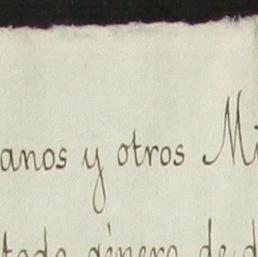 anos y otros Mi
todo género de d